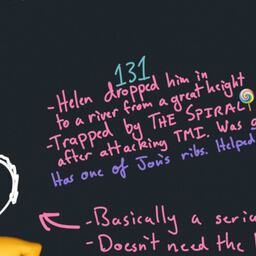 131
-Helen dropped him in
to a river from a great height
-Trapped by THE SPIRAL
after attacking TMI. Was a
Has one of Jon's ribs. Helped
-Basically a seri
-Doesn't need the